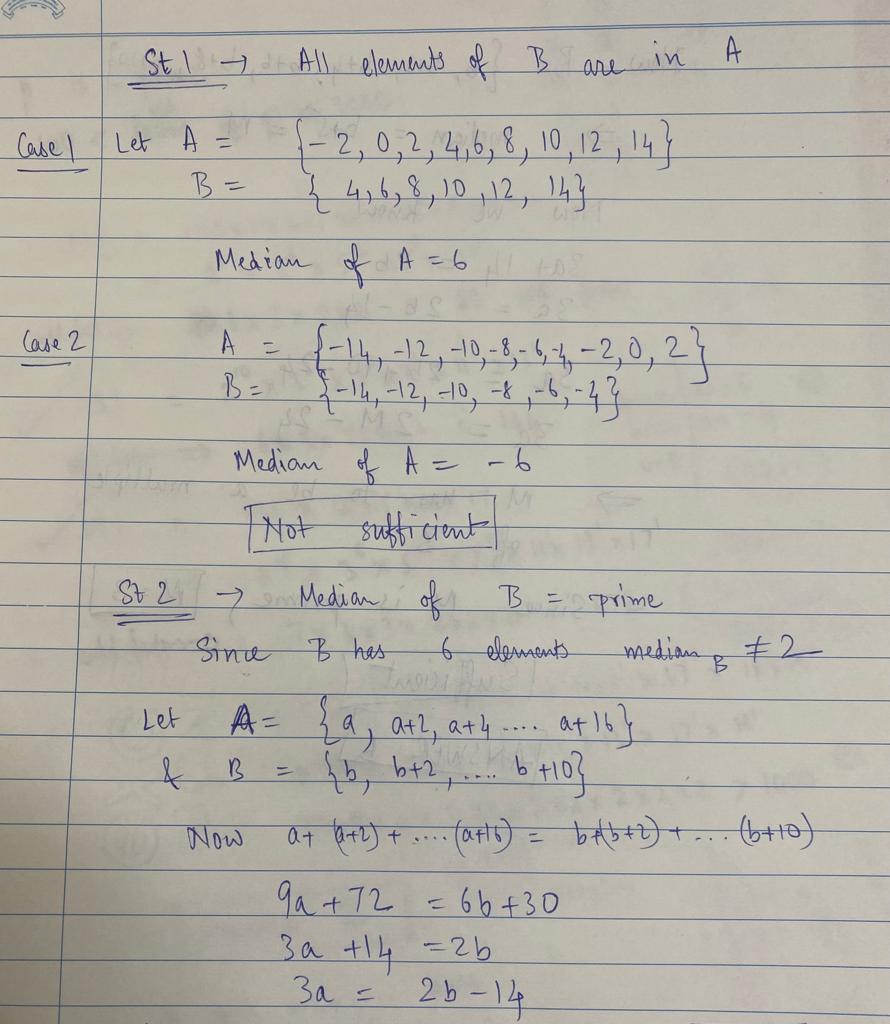 St 1 → All elements of B are in A
Case 1 Let A = {-2, 0, 2, 4, 6, 8, 10, 12, 14}
B = { 4, 6, 8, 10, 12, 14}
Median of A = 6
Case 2 A = {-14, -12, -10, -8, -6, -4, -2, 0, 2}
B = {-14, -12, -10, -8, -6, -4}
Median of A = -6
Not sufficient
St 2 → Median of B = prime
Since B has 6 elements median B ≠ 2
Let A = {a, a+2, a+4 .... a+16}
& B = {b, b+2, .... b+10}
Now a+ (a+2) + .... (a+16) = b+(b+2) + ... (b+10)
9a + 72 = 6b + 30
3a + 14 = 2b
3a = 2b - 14